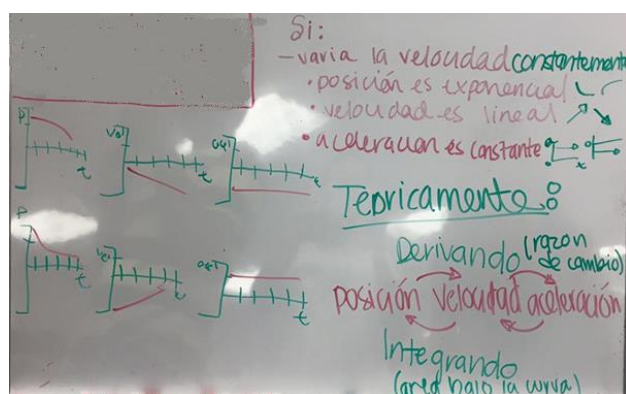 Si:
- varia la velocidad constantemente
• posición es exponencial
• velocidad es lineal
• aceleración es constante
t
P
t
Vel
t
acel
t
Teoricamente:
P
t
Vel
t
acel
t
Derivando (razon de cambio)
posición velocidad aceleración
Integrando
(area bajo la curva)